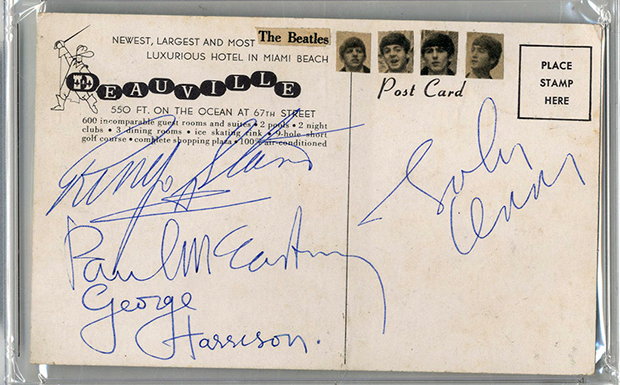 The Beatles
NEWEST, LARGEST AND MOST
LUXURIOUS HOTEL IN MIAMI BEACH
DEAUVILLE
550 FT. ON THE OCEAN AT 67TH STREET
600 incomparable guest rooms and suites • 2 pools • 2 night
clubs • 3 dining rooms • ice skating rink • 9-hole short
golf course • complete shopping plaza • 100% air-conditioned
Post Card
PLACE
STAMP
HERE
Ringo Starr
Paul McCartney
George
Harrison.
John
Lennon